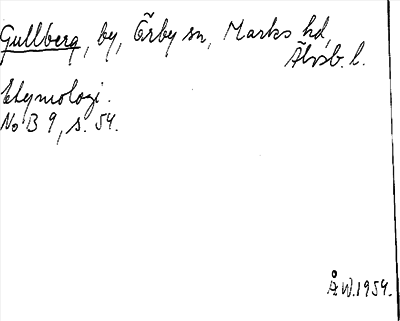 Gullberg, by, Örby sn, Marks hd,
Älvsb. l.
Etymologi.
NoB 9, s. 54.
Å.W. 1954.